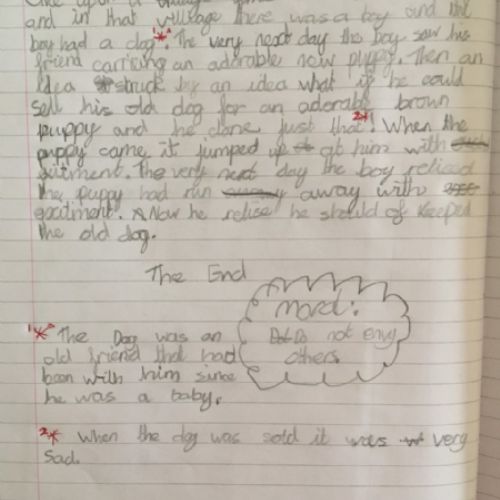 and in that village there was a boy and the
boy had a dog 1*. The very next day the boy saw his
friend carrising an adorable new puppy. Then an
idea struck by an idea what if he could
sell his old dog for an adorable brown
puppy and he done just that 2*! When the
puppy came it jumped at him with
exitment. The very next day the boy relised
the puppy had run away with
excitment. Now he relise he should of keeped
the old dog.
The End
Moral:
Do not envy
others
1* The Dog was an
old friend that had
been with him since
he was a baby.
2* When the dog was sold it was very
Sad.